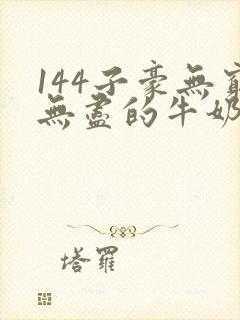 144子豪無窮
無盡的牛奶
塔羅